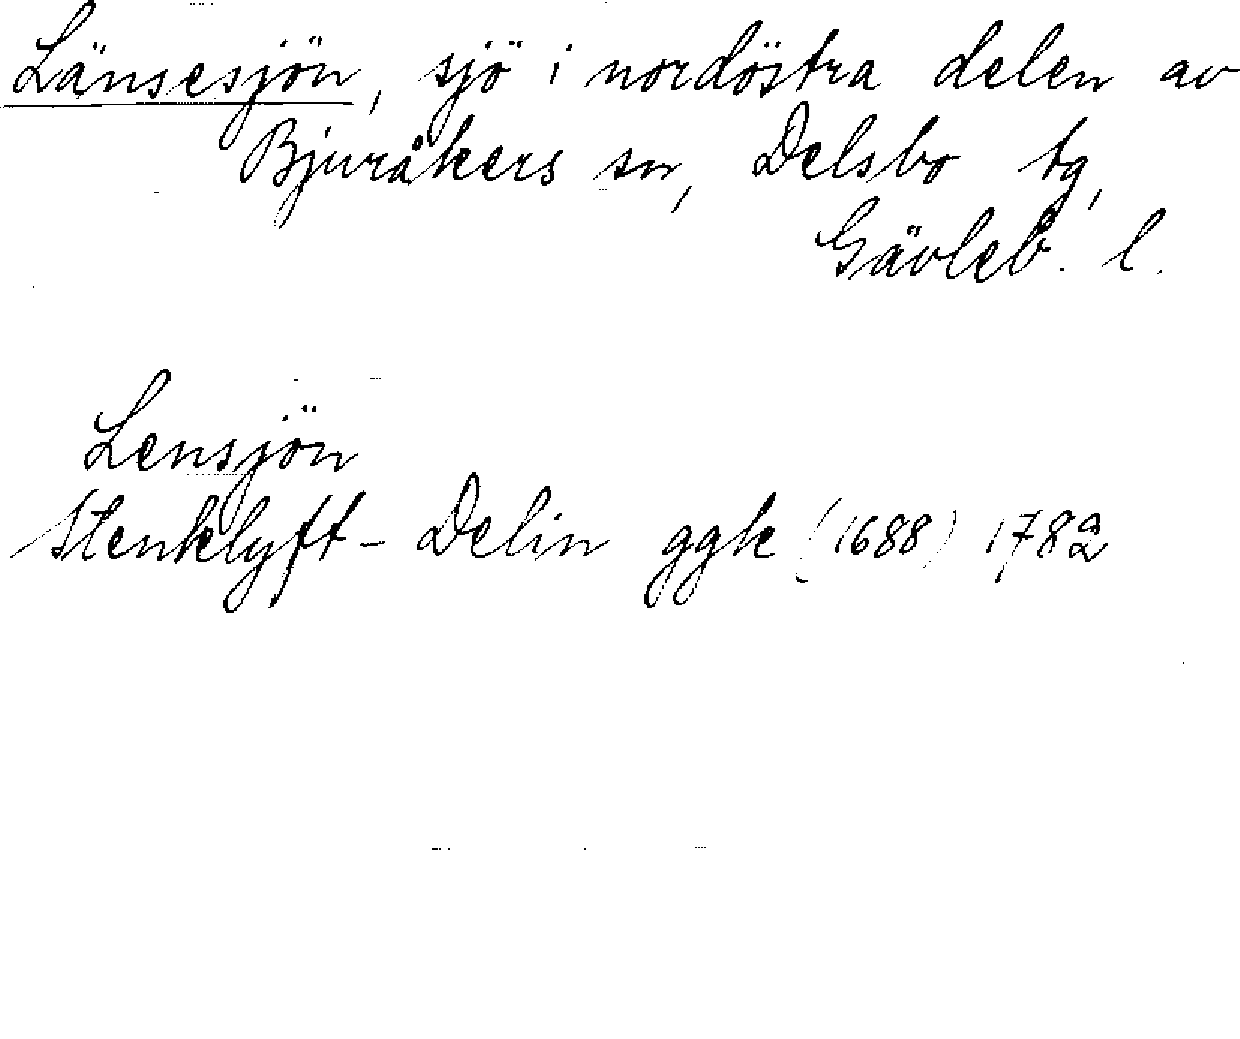 Länsesjön, sjö i nordöstra delen av
Bjuråkers sn, Delsbo tg,
Gävleb. l.
Lensjön
Stenklyft - Delin ggk (1688) 1782